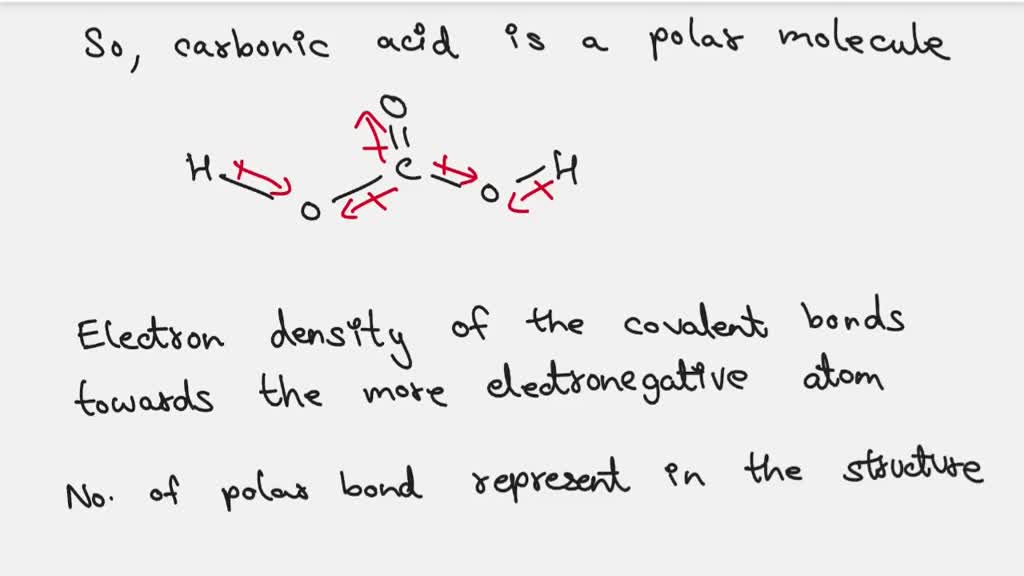 So, carbonic acid is a polar molecule
O
H C H
O O
Electron density of the covalent bonds
towards the more electronegative atom
No. of polar bond represent in the structure